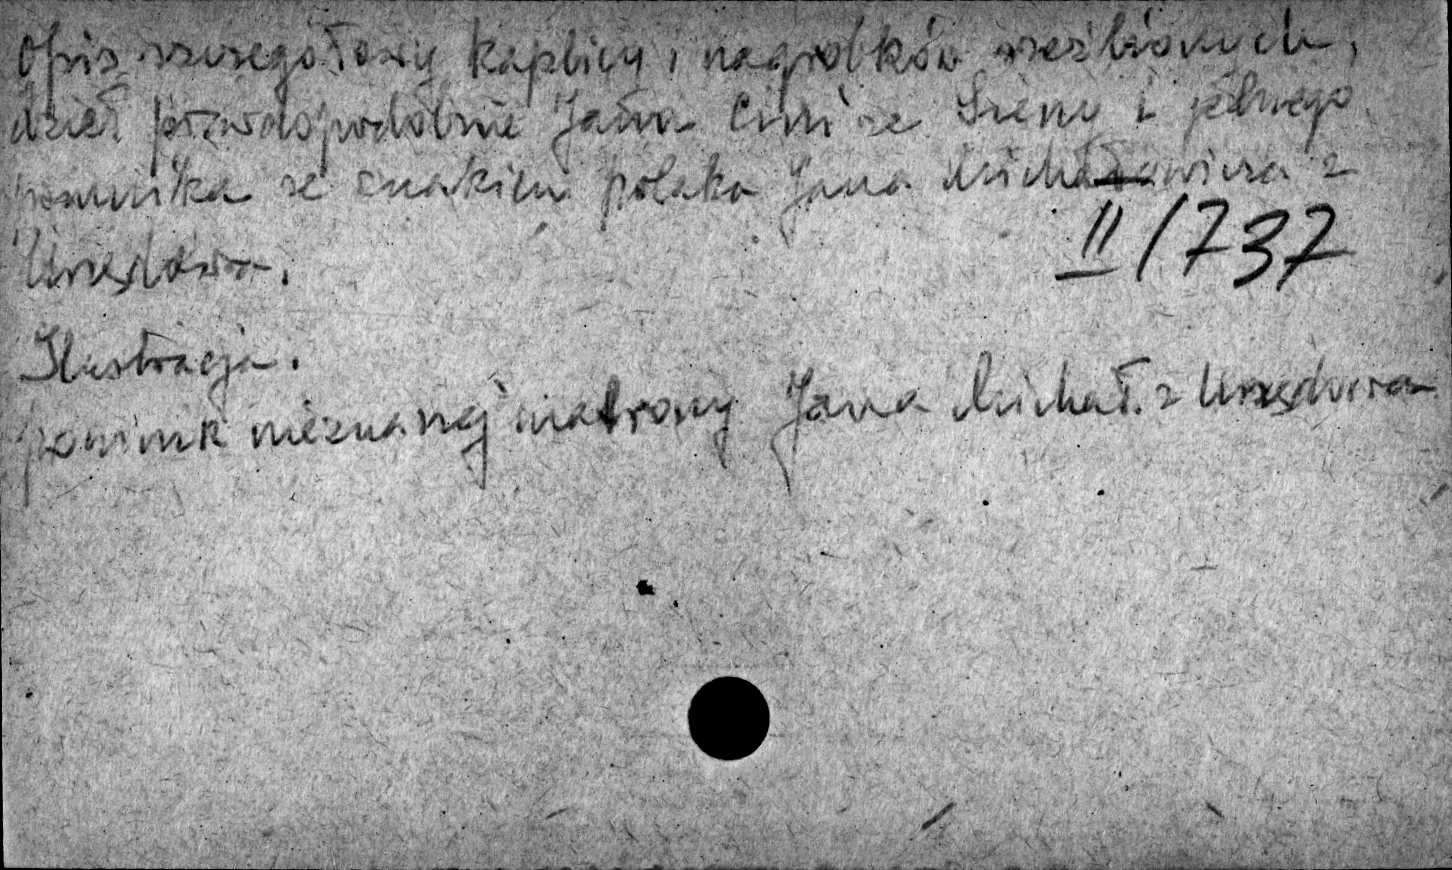 Opis szczegółowy kaplicy i nagrobków rzeźbionych,
dzieł prawdopodobnie Jana Cini ze Sieny i jednego
pomnika ze znakiem polaka Jana Michałowicza z
Urzędowa.
II/737
Ilustracja.
pomnik nieznanej matrony Jana Michał. z Urzędowa